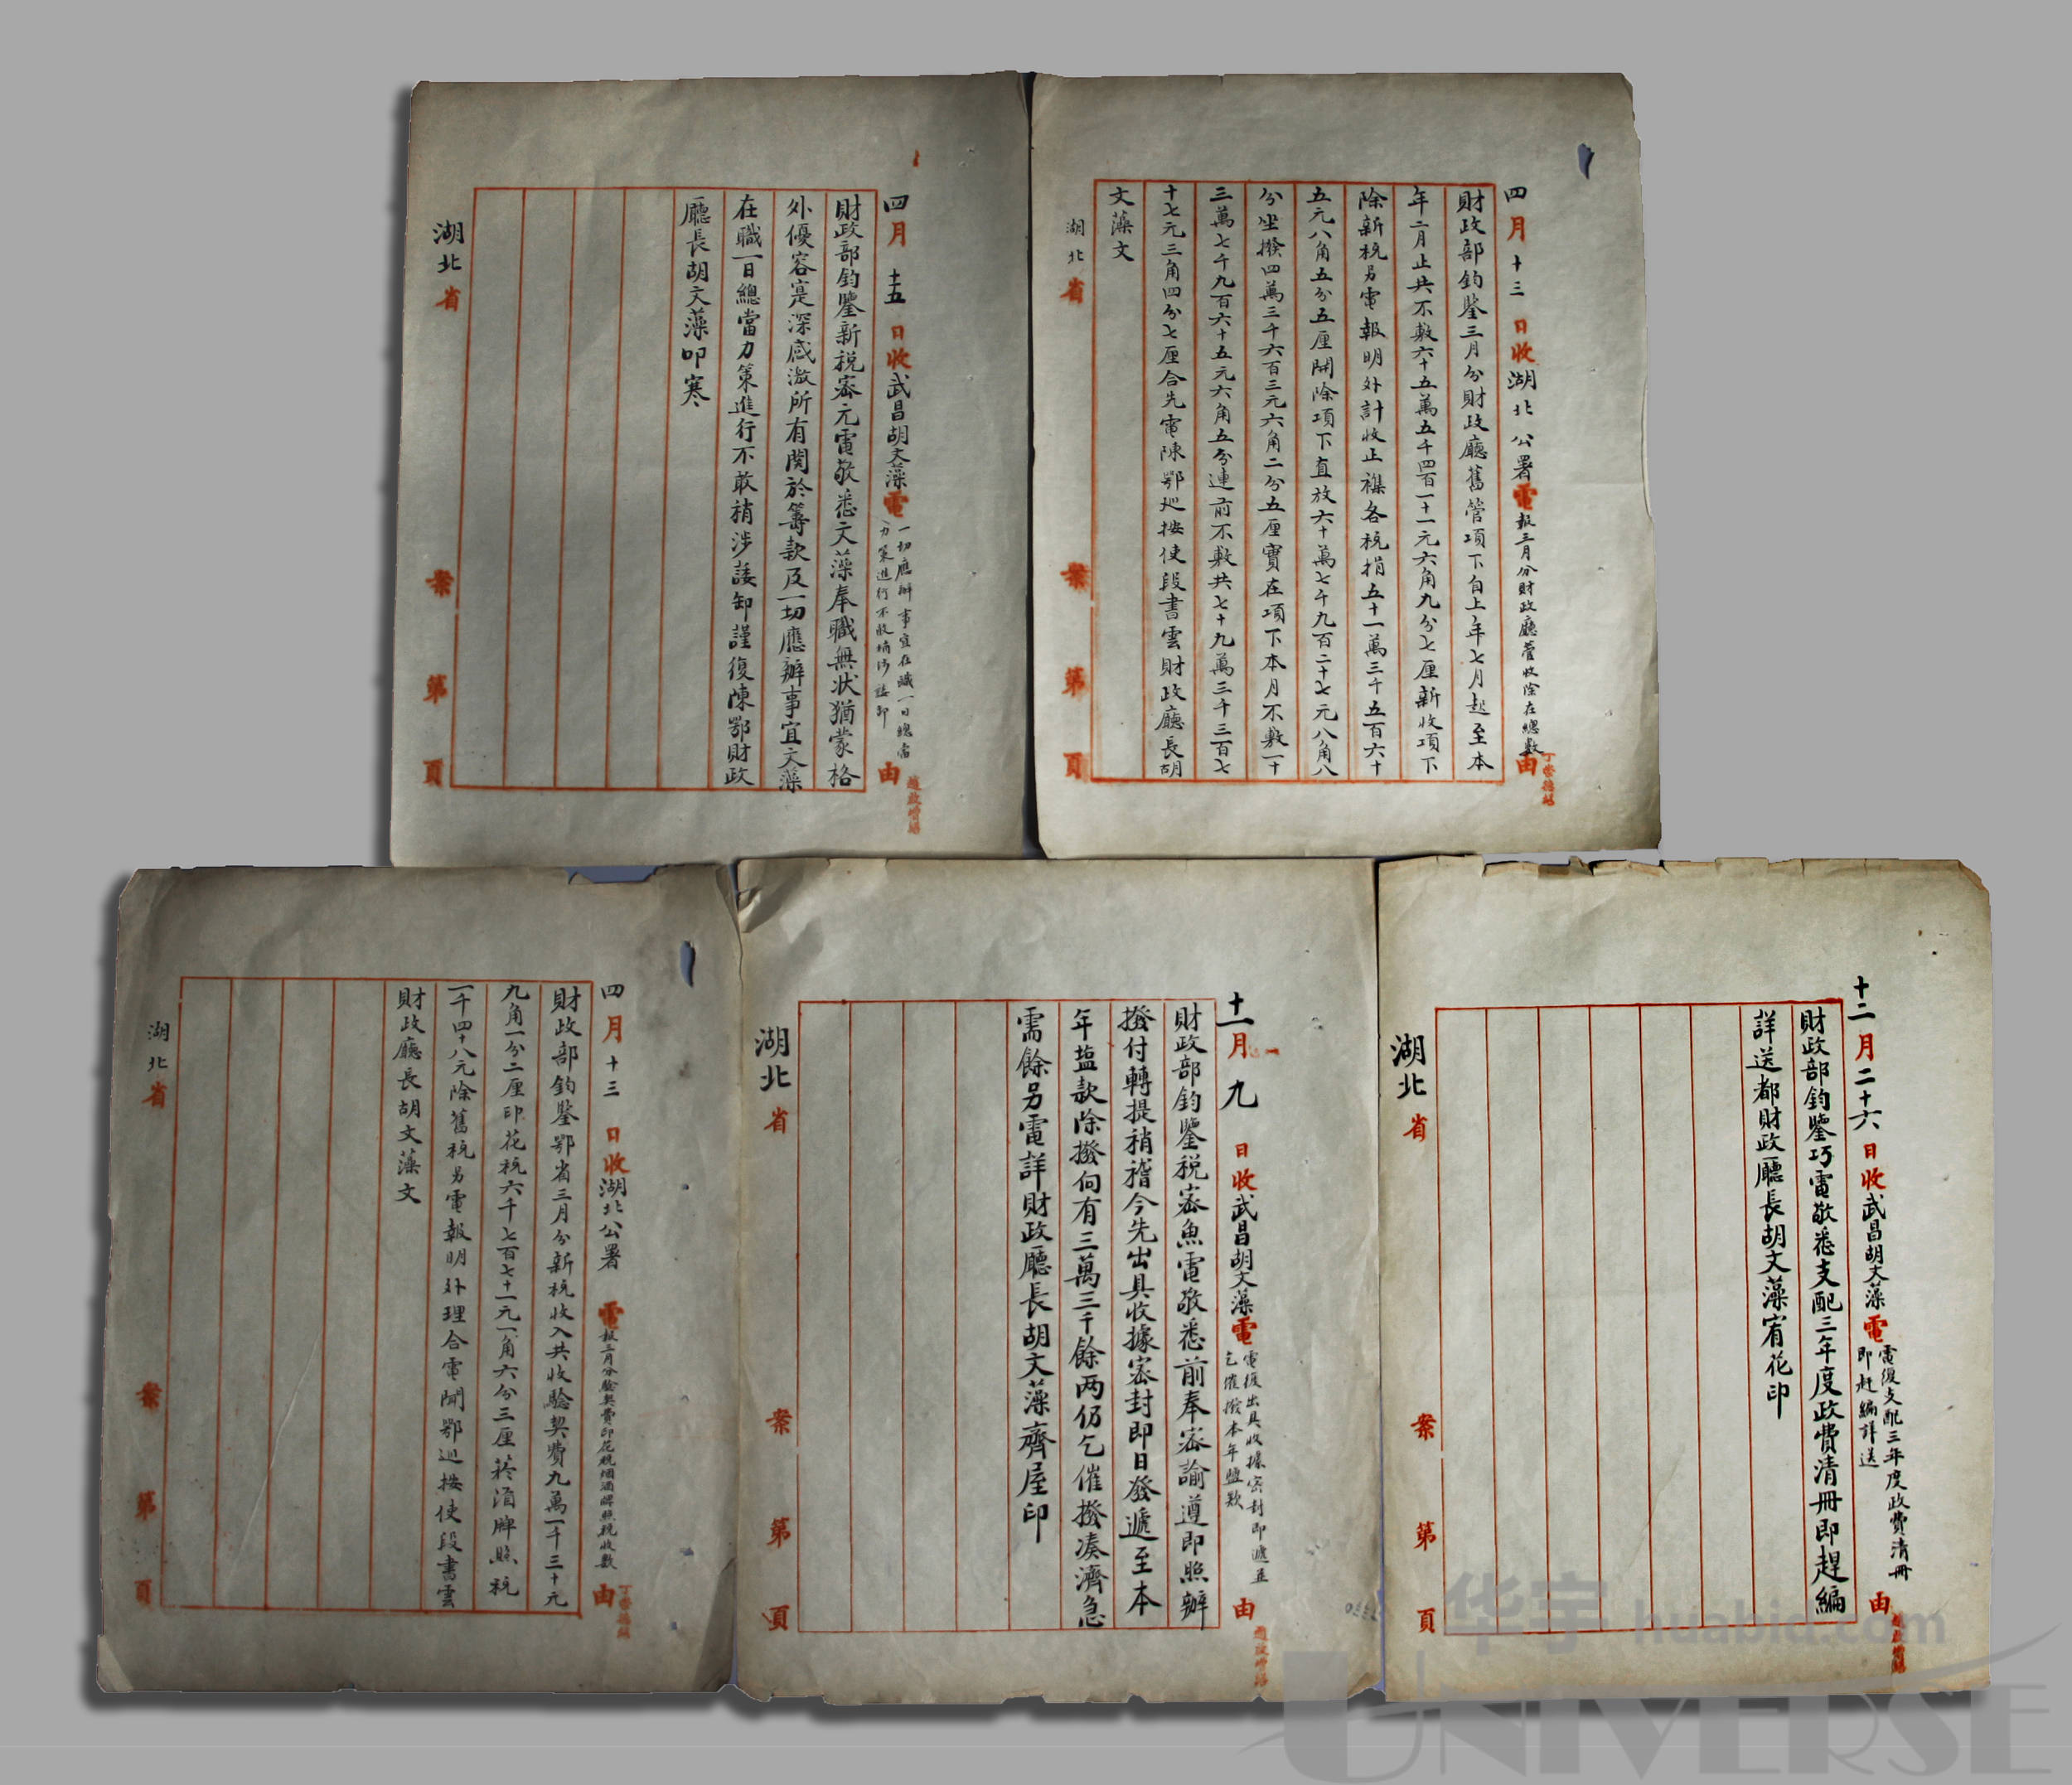 四月十三日收湖北公署電報三月分財政廳舊管收除在總數由
財政部鈞鑒三月分財政廳舊管項下自上年七月起至本
年二月止共不敷六十五萬五千四百一十一元六角九分七厘新收項下
除新稅另電報明外計收正雜各稅捐五十一萬三千五百六十
五元八角五分五厘開除項下直放六十萬七千九百二十七元八角八
分坐撥四萬三千六百三元六角二分五厘實在項下本月不敷一十
三萬七千九百六十五元六角五分連前不敷共七十九萬三千三百七
十七元三角四分七厘合先電陳鄂巡按使段書雲財政廳長胡
文藻文
湖北省 案 第 頁
四月十五日收武昌胡文藻電
一切應辦事宜在職一日總當
力策進行不敢稍涉諉卸
由
財政部鈞鑒新税密元電敬悉文藻奉職無状猶蒙格
外優容寔深感激所有関於籌款及一切應辦事宜文藻
在職一日總當力策進行不敢稍涉諉卸謹復陳鄂財政
廳長胡文藻叩寒
湖北省 案 第 頁
十二月二十六日收武昌胡文藻電
電復支配三年度政費清冊
即赶編詳送
由
財政部鈞鑒巧電敬悉支配三年度政費清冊即趕編
詳送都財政廳長胡文藻宥花印
湖北省 案 第 頁
十一月九日收武昌胡文藻電
電復出具收據密封即遞並
乞催撥本年鹽款
由
財政部鈞鑒税密魚電敬悉前奉密諭遵即照辦
撥付轉提稍稽今先出具收據密封即日發遞至本
年塩款除撥向有三萬三千餘两仍乞催撥凑濟急
需餘另電詳財政廳長胡文藻齊屋印
湖北省 案 第 頁
四月十三日收湖北公署電報三月分驗契費印花稅烟酒牌照稅收數由
財政部鈞鑒鄂省三月分新稅收入共收驗契費九萬一千三十元
九角一分二厘印花稅六千七百七十一元一角六分三厘菸酒牌照稅
一千四十八元除舊稅另電報明外理合電聞鄂巡按使段書雲
財政廳長胡文藻文
湖北省 案 第 頁
华宇 huabid.com
UNIVERSE